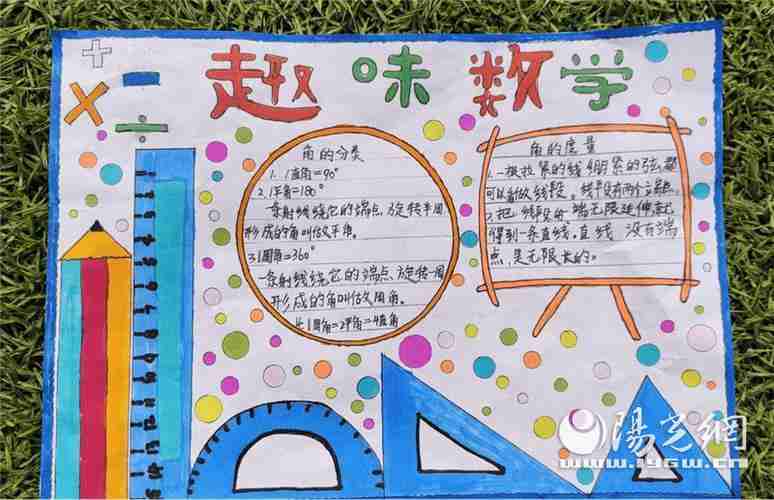 趣味数学
角的分类
1. 1直角=90°
2. 1平角=180°
一条射线绕它的端点,旋转半周
形成的角叫做平角。
3. 1周角=360°
一条射线绕它的端点,旋转一周
形成的角叫做周角。
4. 1周角=2平角=4直角
角的度量
1. 一根拉紧的线,绷紧的弦都
可以看做线段。线段有两个端点。
2. 把线段的一端无限延伸就
得到一条直线。直线没有端
点,是无限长的。
陽光網
www.igw.cn